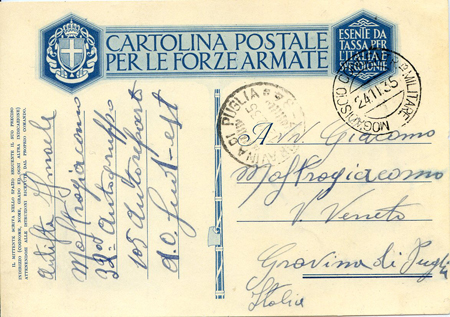 CARTOLINA POSTALE
PER LE FORZE ARMATE
ESENTE DA
TASSA PER
L'ITALIA E
SUE COLONIE
GRAVINA DI PUGLIA
MILITARE
24.11.35
Avv Giacomo
Mastrogiacomo
V. Veneto
Gravina di Puglia
Italia
Mastrogiacomo
32° Autogruppo
105 Autoreparto
A.O.
IL MITTENTE SCRIVA NELLO SPAZIO SEGUENTE IL SUO PRECISO
INDIRIZZO (COGNOME, NOME, GRADO ED OGNI ALTRA INDICAZIONE)
ATTENENDOSI ALLE ISTRUZIONI RICEVUTE DAL PROPRIO COMANDO.